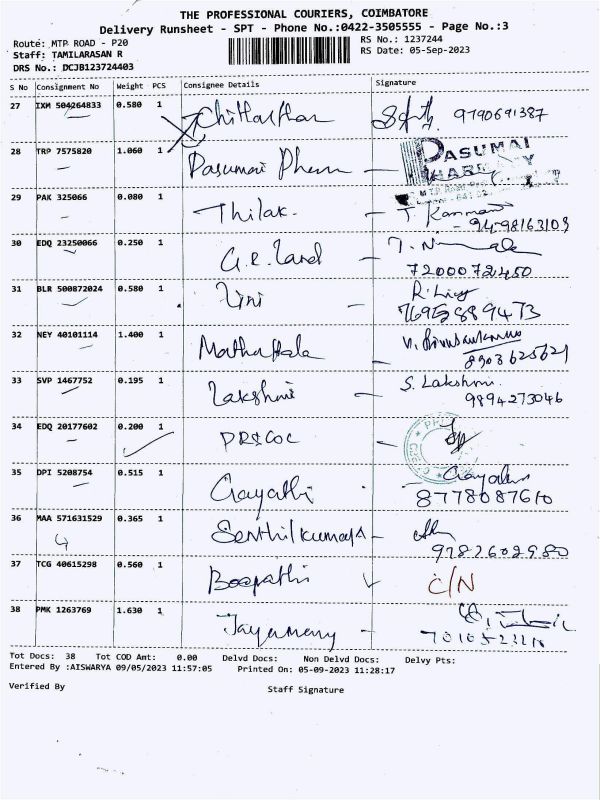 THE PROFESSIONAL COURIERS, COIMBATORE
Delivery Runsheet - SPT - Phone No.:0422-3505555 - Page No.:3
Route: MTP ROAD - P20
RS No.: 1237244
Staff: TAMILARASAN R
RS Date: 05-Sep-2023
DRS No.: DCJB123724403
S No Consignment No Weight PCS Consignee Details Signature
27 IXM 504264833 0.580 1 9790691387
28 TRP 7575820 1.060 1 Pasumai Pharm PASUMAI
29 PAK 325066 0.080 1 Thilak.
30 EDQ 23250066 0.250 1 G.R. Land
7200072450
31 BLR 500872024 0.580 1
32 NEY 40101114 1.400 1
8903625621
33 SVP 1467752 0.195 1 Lakshmi S. Lakshmi
9894273046
34 EDQ 20177602 0.200 1 PRICOL
35 DPI 5208754 0.515 1 Gayathi
8778087610
36 MAA 571631529 0.365 1 Senthilkumar
37 TCG 40615298 0.560 1 Boopathi C/N
38 PMK 1263769 1.630 1
Tot Docs: 38 Tot COD Amt: 0.00 Delvd Docs: Non Delvd Docs: Delvy Pts:
Entered By :AISWARYA 09/05/2023 11:57:05 Printed On: 05-09-2023 11:28:17
Verified By
Staff Signature